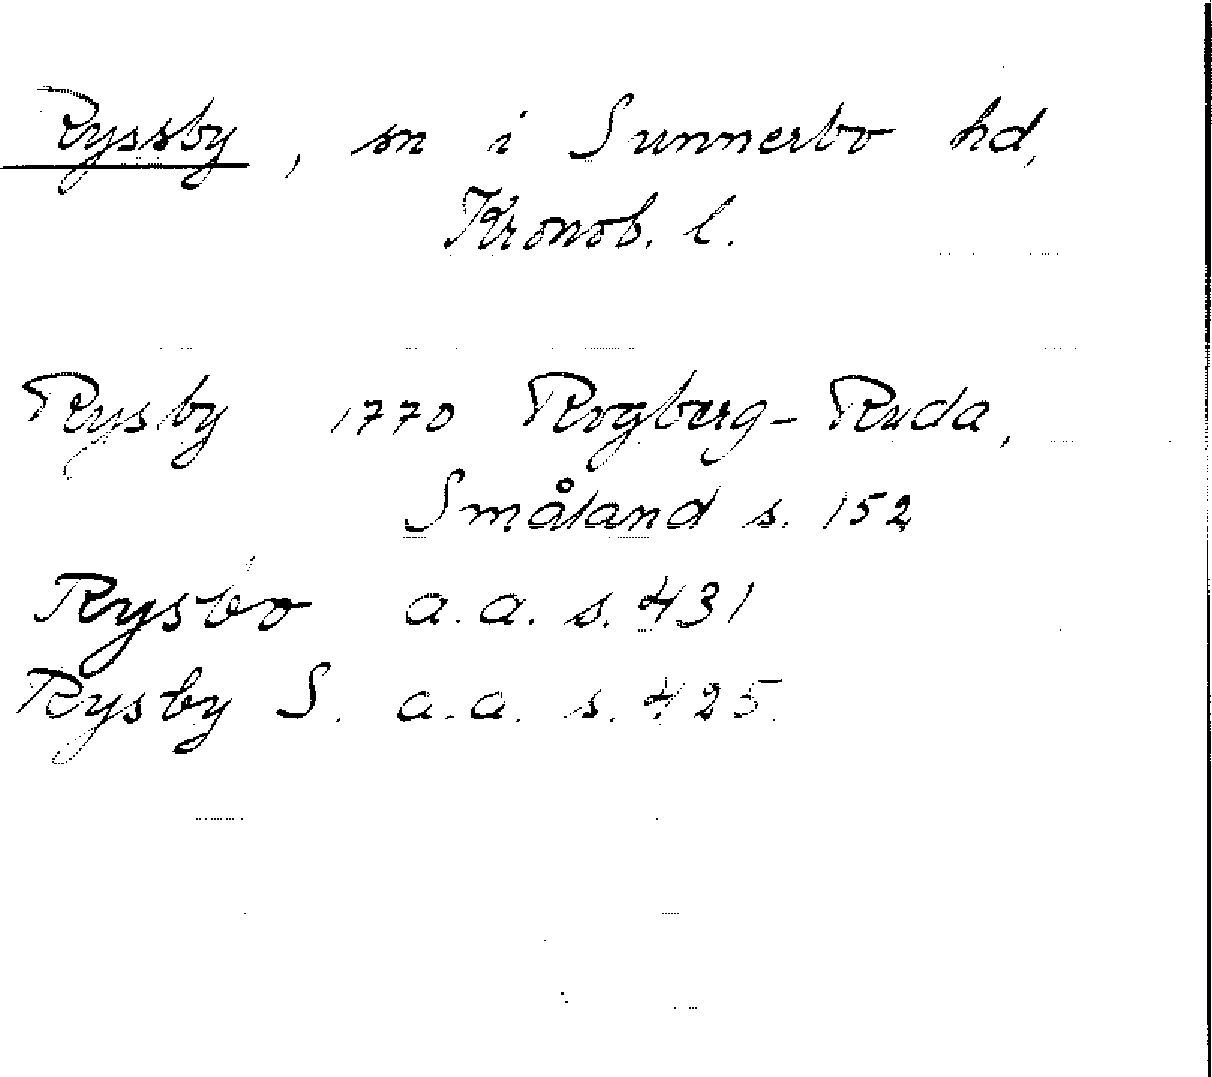 Ryssby, sn i Sunnerbo hd,
Kronob. l.
Rysby 1770 Rogberg-Ruda,
Småland s. 152
Rysbo a.a. s. 431
Rysby S. a.a. s. 425